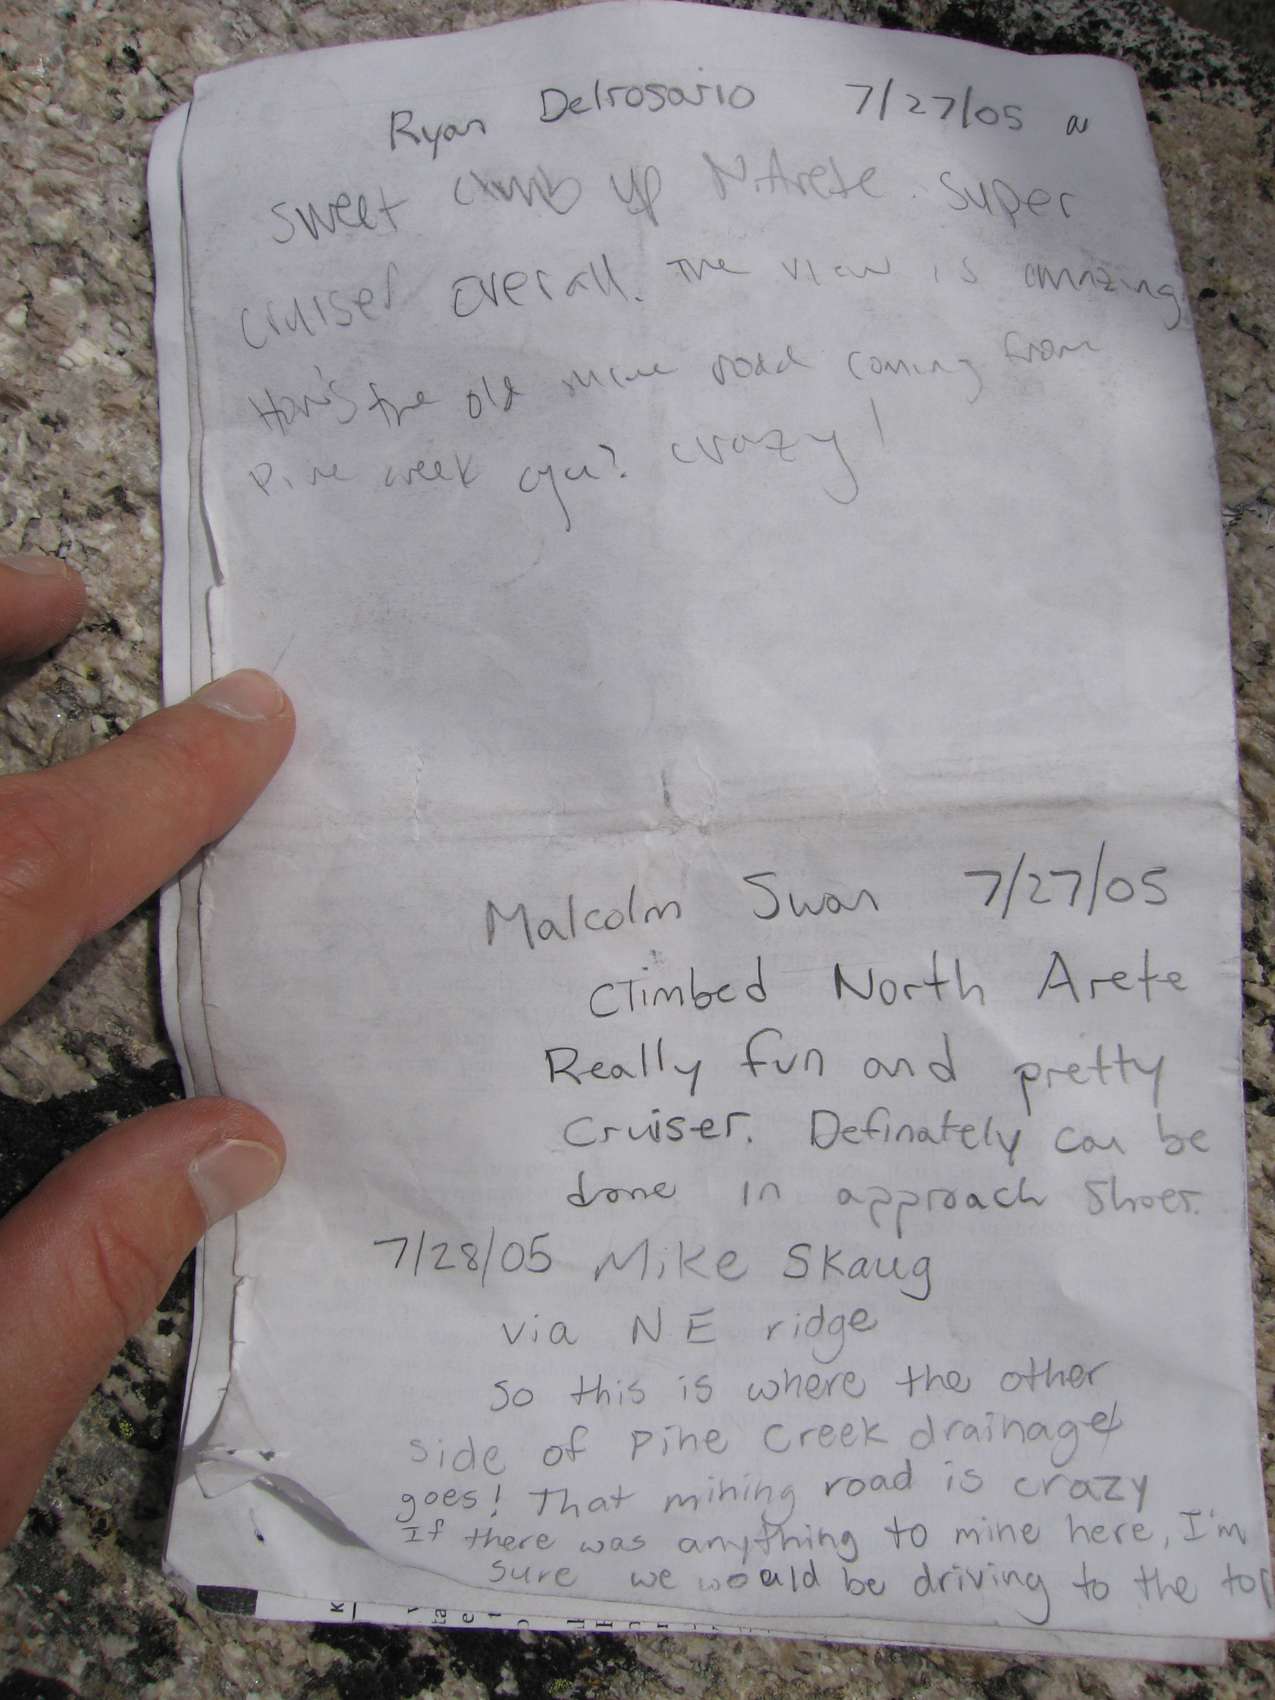 Ryan Delrosario 7/27/05 a
sweet climb up N. Arete. Super
cruiser overall. The view is amazing
How's the old mine road coming from
Pine creek eya? crazy!
Malcolm Swan 7/27/05
Climbed North Arete
Really fun and pretty
cruiser. Definately can be
done in approach shoes.
7/28/05 Mike Skaug
via NE ridge
So this is where the other
side of Pine Creek drainage
goes! That mining road is crazy
If there was anything to mine here, I'm
sure we would be driving to the top